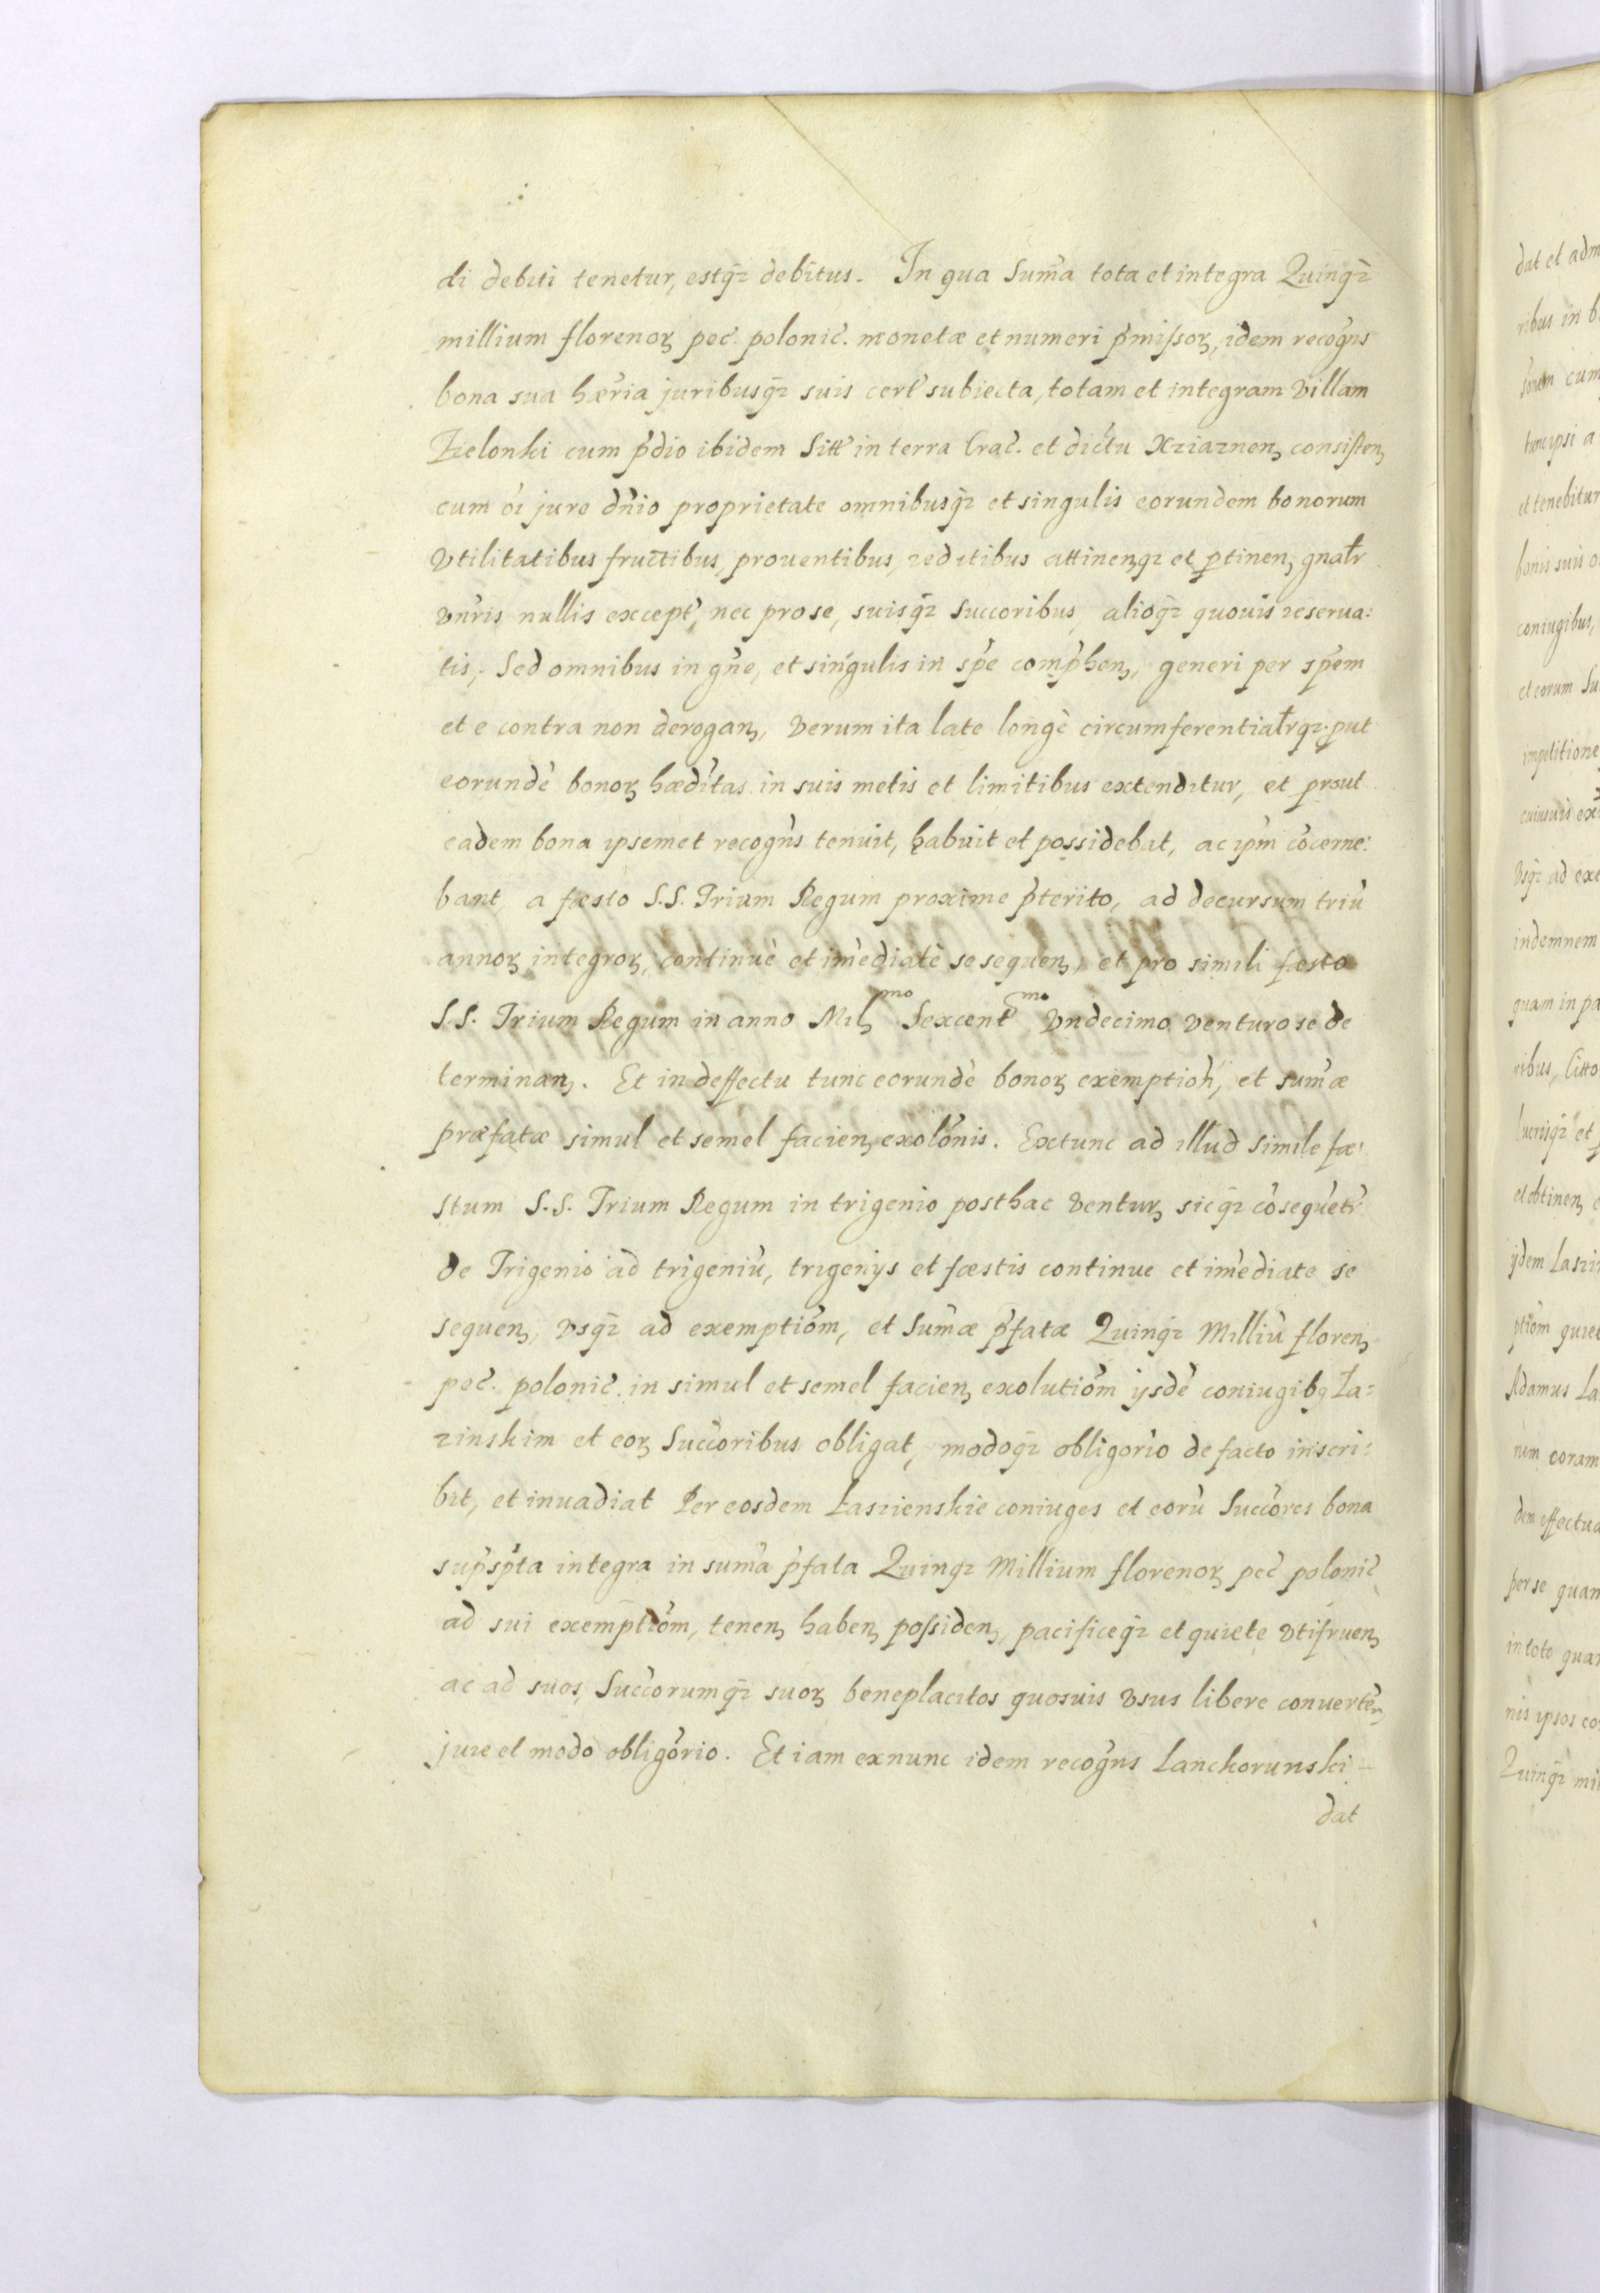 di debiti tenetur, estq̃ꝫ debitus. In qua Sum̃a tota et integra Quinq̃ꝫ
millium florenoꝝ pec̃. polonic̃. monetæ et numeri p̃missoꝝ, idem recog̃ns
bona sua hær̃ia juribusq̃ꝫ suis cert̃ subiecta, totam et integram Villam
Zielonki cum p̃dio ibidem Sitt̃ in terra Crac̃. et dict̃u Xziaznenꝫ consistenꝫ
cum oı̃ jure dñio proprietate omnibusq̃ꝫ et singulis eorundem bonorum
Vtilitatibus fructibus, prouentibus, reditibus attinenꝫqꝫ et ꝑtinenꝫ gnalr̃
Vnr̃is nullis except̃, nec pro se, suisq̃ꝫ Succoribus, alioq̃ꝫ quouis reserua:
tis, Sed omnibus in gñe, et singulis in sp̃e comp̃henꝫ, generi per sp̃em
et e contra non deroganꝫ, Verum ita late longè circumferentialr̃qꝫ put
eorundẽ bonoꝝ hædĩtas in suis metis et limitibus extenditur, et prout
eadem bona ipsemet recog̃ns tenuit, habuit et possidebat, ac ipm̃ cõcerne:
bant, a fæsto S.S. Trium Regum proxime p̃terito, ad decursum triũ
annoꝝ integroꝝ, continuè et im̃ediatè se sequenꝫ, et pro simili fæsto
S.S. Trium Regum in anno Milꝫmo Sexcent̃mo Vndecimo venturo se de
terminanꝫ. Et in deffectu tunc eorundẽ bonoꝝ exemptioñ, et sum̃æ
præfatæ simul et semel facienꝫ exolõnis. Extunc ad illud simile fæ:
stum S.S. Trium Regum in trigenio posthac Venturꝫ sicq̃ꝫ cõsequetr̃
de Trigenio ad trigeniũ, trigenijs et fæstis continue et im̃ediate se
sequenꝫ, Vsq̃ꝫ ad exemptiõm, et Sum̃æ p̃fatæ Quinq̃ꝫ Milliũ florenꝫ
pec̃. polonic̃. in simul et semel facienꝫ exolutiõm ijsdẽ coniugibꝫ Ła:
zinskim et eoꝝ Succ̃oribus obligat, modoq̃ꝫ obligor̃io de facto inscri:
bit, et inuadiat Per eosdem Łaszienskie coniuges et eorũ Succ̃ores bona
sup̃sp̃ta integra in sum̃a p̃fata Quinqꝫ Millium florenoꝝ pec̃ polonic̃
ad sui exemptiõm, tenenꝫ habenꝫ possidenꝫ, pacificeq̃ꝫ et quiete Vtifruenꝫ
ac ad suos, Succ̃orumq̃ꝫ suoꝝ beneplacitos quosuis Vsus libere conuertẽnꝫ
jure et modo obligõrio. Et iam exnunc idem recog̃ns Lanckorunski
dat